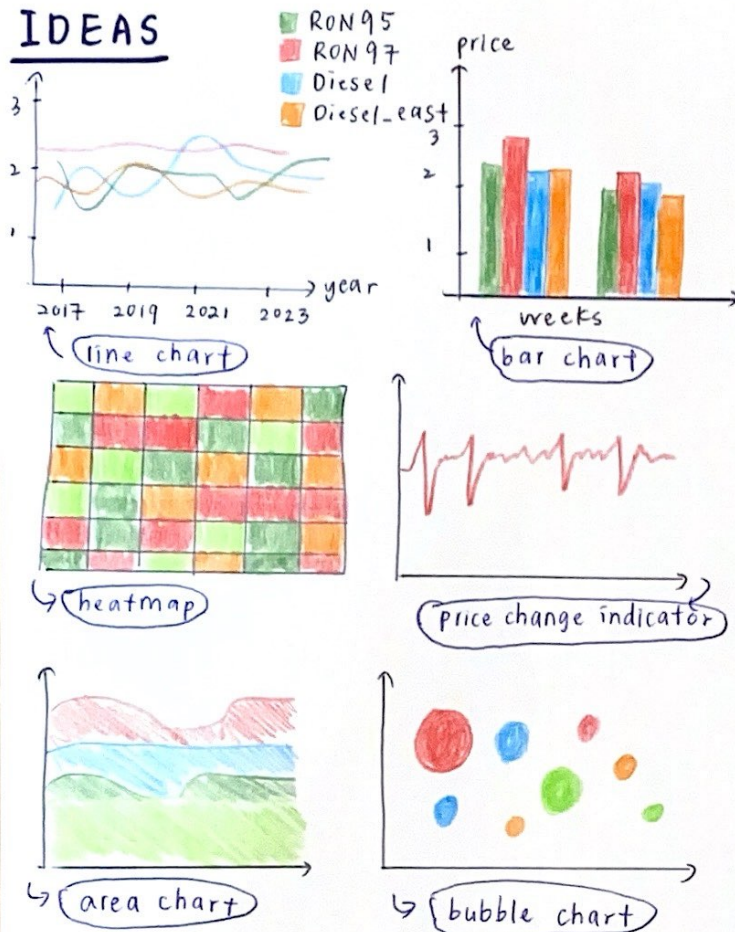 IDEAS
RON95
RON97
Diesel
Diesel_east
3
2
1
year
2017 2019 2021 2023
line chart
price
3
2
1
weeks
bar chart
heatmap
price change indicator
area chart
bubble chart